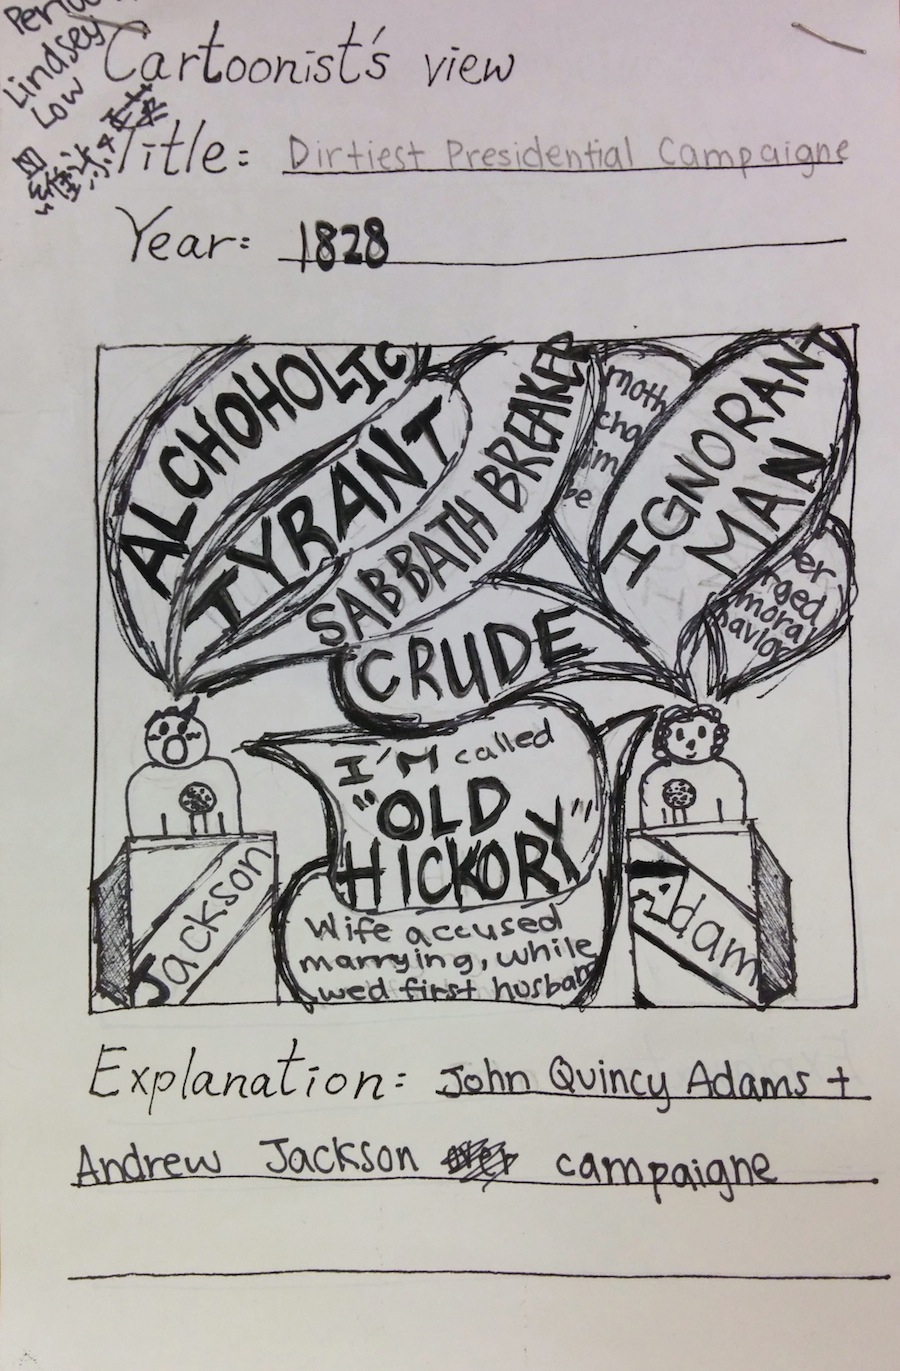 Lindsey
Low
Cartoonist's view
Title: Dirtiest Presidential Campaigne
Year: 1828
ALCHOHOLIC
TYRANT
SABBATH BREAKER
moth er
cha rged
im moral
be havior
IGNORANT
MAN
CRUDE
I'M called
"OLD
HICKORY"
Wife accused
marrying, while
wed first husban
Jackson
Adam
Explanation: John Quincy Adams +
Andrew Jackson campaigne